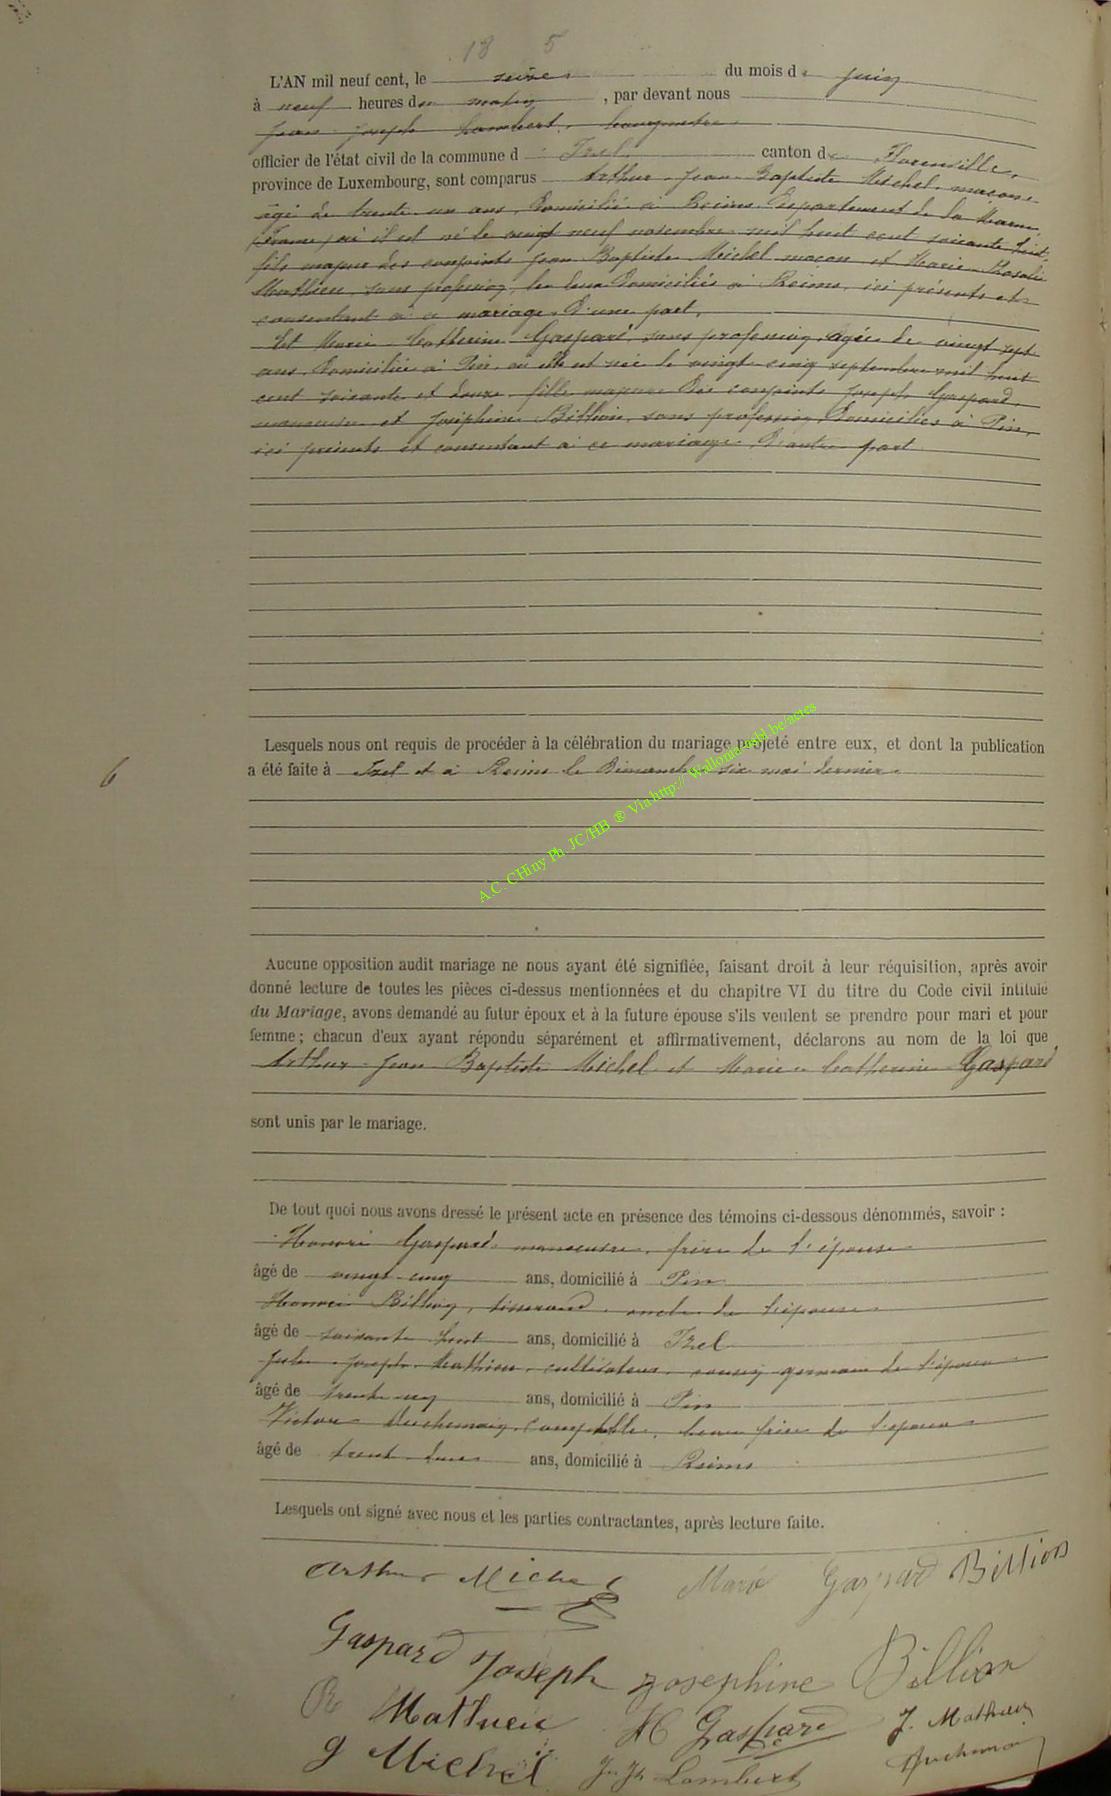 18 5
L'AN mil neuf cent, le seize du mois de juin
à neuf heures du matin, par devant nous
Jean Joseph Lambert, bourgmestre
officier de l'état civil de la commune d Izel canton de Florenville,
province de Luxembourg, sont comparus Arthur Jean Baptiste Michel, maçon
âgé de trente un ans, domicilié à Reims Département de la Marne
(France) où il est né le vingt neuf novembre mil huit cent soixante huit,
fils majeur des conjoints Jean Baptiste Michel maçon et Marie Rosalie
Mathieu, sans profession, les deux domiciliés à Reims, ici présents et
consentant à ce mariage, d'une part,
Et Marie Catherine Gaspard, sans profession, âgée de vingt sept
ans, domiciliée à Pin, où elle est née le vingt cinq septembre mil huit
cent soixante et douze, fille majeure des conjoints Joseph Gaspard
manoeuvre et Joséphine Billion, sans profession, domiciliés à Pin,
ici présents et consentant à ce mariage, d'autre part
Lesquels nous ont requis de procéder à la célébration du mariage projeté entre eux, et dont la publication
a été faite à Izel et à Reims le Dimanche six mai dernier
6
A.C. CHiny Ph JC/HB ® Via http:// Wallonia-asbl.be/actes
Aucune opposition audit mariage ne nous ayant été signifiée, faisant droit à leur réquisition, après avoir
donné lecture de toutes les pièces ci-dessus mentionnées et du chapitre VI du titre du Code civil intitulé
du Mariage, avons demandé au futur époux et à la future épouse s'ils veulent se prendre pour mari et pour
femme ; chacun d'eux ayant répondu séparément et affirmativement, déclarons au nom de la loi que
Arthur Jean Baptiste Michel et Marie Catherine Gaspard
sont unis par le mariage.
De tout quoi nous avons dressé le présent acte en présence des témoins ci-dessous dénommés, savoir :
Honoré Gaspard manoeuvre, frère de l'épouse
âgé de vingt cinq ans, domicilié à Pin
Honoré Billion, tisserand, oncle de l'épouse
âgé de soixante huit ans, domicilié à Izel
Jules Joseph Mathieu, cultivateur, cousin germain de l'époux
âgé de trente ans, domicilié à Pin
Victor Duchemin, comptable, beau frère de l'époux
âgé de trente deux ans, domicilié à Reims
Lesquels ont signé avec nous et les parties contractantes, après lecture faite.
Arthur Michel Marie Gaspard Billion
Gaspard Joseph Josephine Billion
R Mathieu H Gaspard J. Mathieu
J Michel Jn Jh Lambert Duchemin